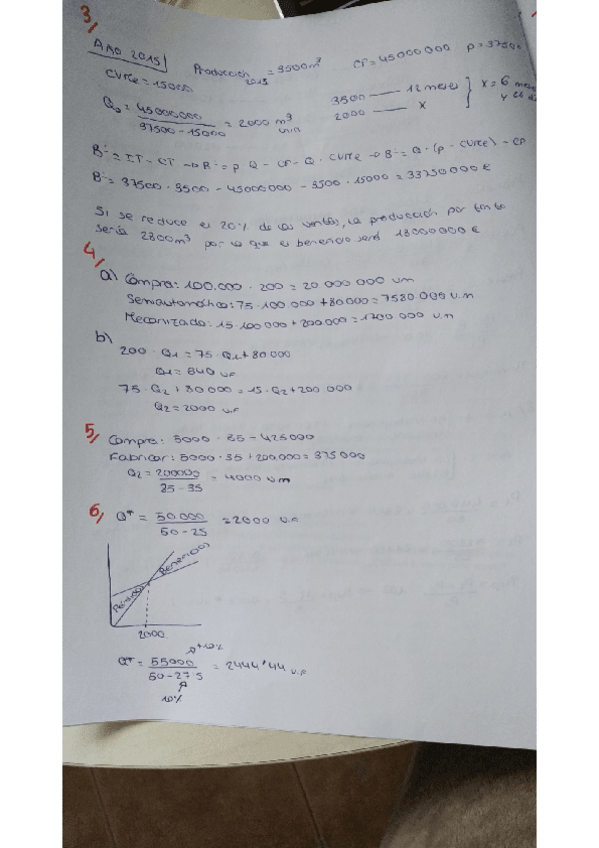 3/
Año 2015 Producción 2015 = 3500m³ CF = 45000000 p = 37500
CVMe = 15000
Q₀ = 45000000 / 37500 - 15000 = 2000 m³
3500 — 12 meses
2000 — x
x = 6
Bº = IT - CT → Bº = p · Q - CF - Q · CVMe → Bº = Q · (p - CVMe) - CF
Bº = 37500 · 3500 - 45000000 - 3500 · 15000 = 33750000 €
Si se reduce el 20% de las ventas, la producción por tanto
sería 2800m³ por lo que el beneficio será 18000000 €
4/
a) Compra: 100.000 · 200 = 20 000 000 um
Semiautomático: 75 · 100.000 + 80000 = 7580.000 u.m
Mecanizado: 15 · 100000 + 200000 = 1700 000 u.m
b)
200 · Q1 = 75 · Q1 + 80000
Q1 = 640 u.f
75 · Q2 + 80000 = 15 · Q2 + 200 000
Q2 = 2000 u.f
5/ Compra: 5000 · 85 = 425000
Fabricar: 5000 · 35 + 200.000 = 375000
Q2 = 200000 / 85 - 35 = 4000 um
6/ Q* = 50.000 / 50 - 25 = 2000 u.f
Beneficios
Pérdidas
2000
+10%
Q* = 55000 / 50 - 27'5 = 2444'44 u.f
10%